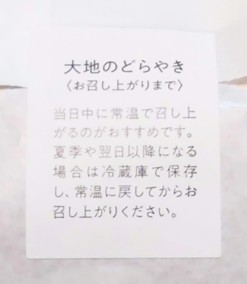 大地のどらやき
〈お召し上がりまで〉
当日中に常温で召し上
がるのがおすすめです。
夏季や翌日以降になる
場合は冷蔵庫で保存
し、常温に戻してからお
召し上がりください。